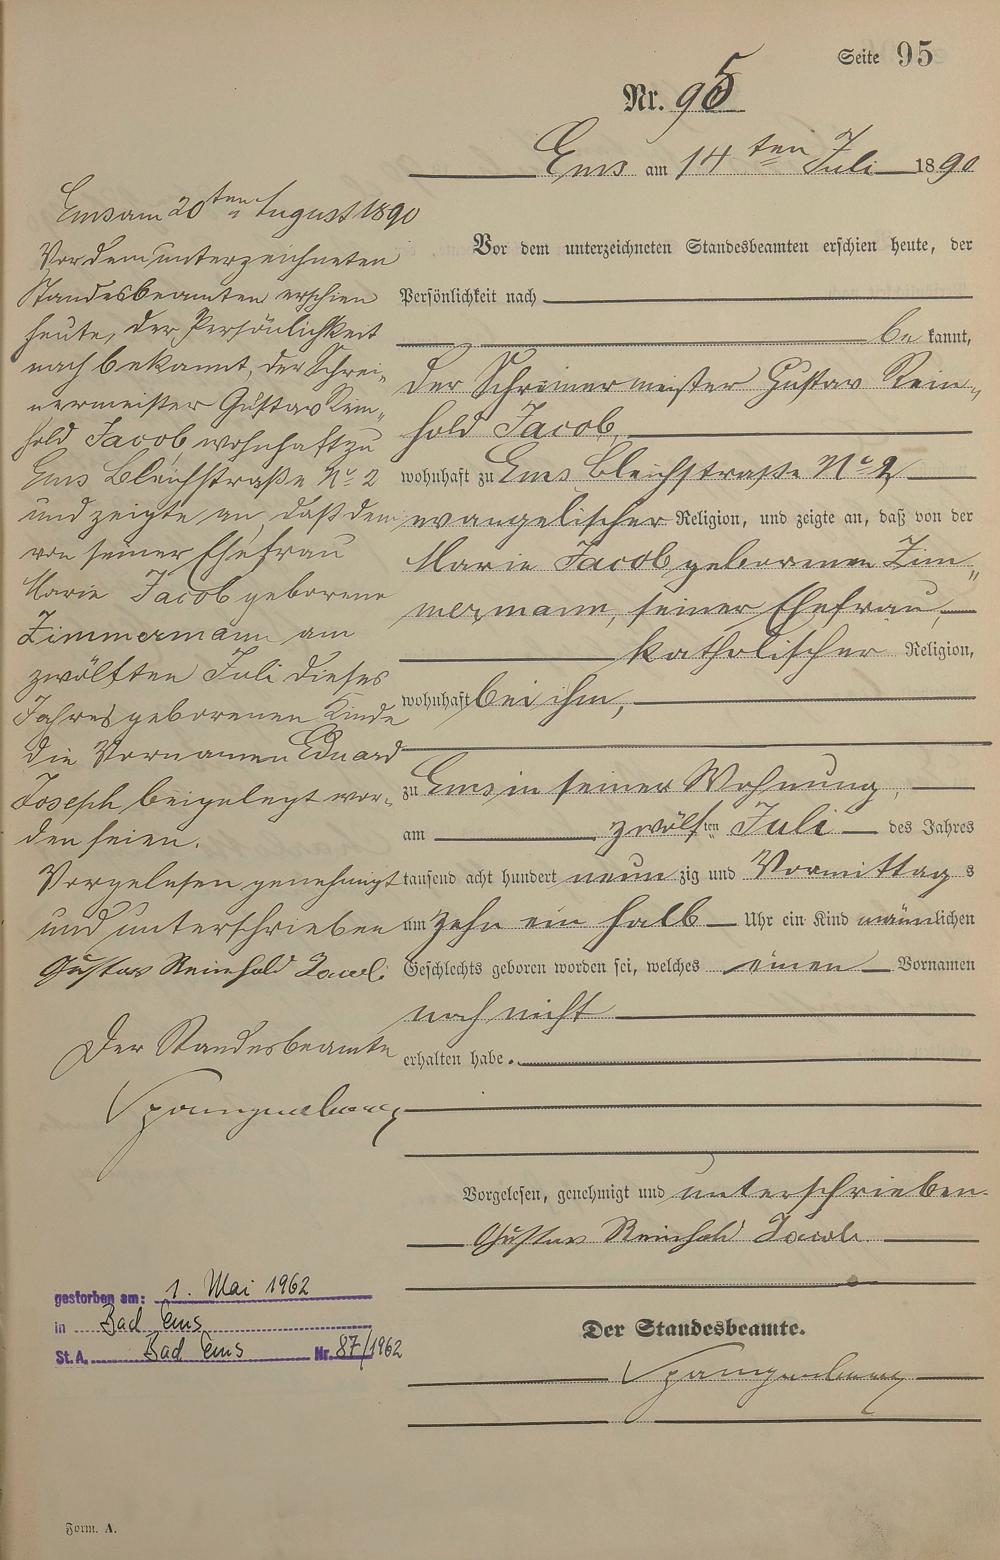 Seite 95
Nr. 95
Ems am 14ten Juli 1890
Vor dem unterzeichneten Standesbeamten erschien heute, der
Persönlichkeit nach
be kannt,
der Schreinermeister Gustav Rein„
hold Jacob,
wohnhaft zu Ems, Bleichstraße No 2
evangelischer Religion, und zeigte an, daß von der
Marie Jacob geborenen Zim„
mermann, seiner Ehefrau,
katholischer Religion,
wohnhaft bei ihm,
zu Ems in seiner Wohnung,
am zwölften Juli des Jahres
tausend acht hundert neunzig und Vormittags
um zehn ein halb Uhr ein Kind männlichen
Geschlechts geboren worden sei, welches einen Vornamen
noch nicht
erhalten habe.
Vorgelesen, genehmigt und unterschrieben.
Gustav Reinhold Jacob
Der Standesbeamte.
Spangenberg
Ems am 20ten August 1890
Vor dem unterzeichneten
Standesbeamten erschien
heute, der Persönlichkeit
nach bekannt, der Schrei„
nermeister Gustav Rein„
hold Jacob, wohnhaft zu
Ems Bleichstraße No 2
und zeigte an, daß dem
von seiner Ehefrau
Marie Jacob geborene
Zimmermann am
zwölften Juli dieses
Jahres geborenen Kinde
die Vornamen Eduard
Joseph beigelegt wor„
den seien.
Vorgelesen genehmigt
und unterschrieben
Gustav Reinhold Jacob
Der Standesbeamte
Spangenberg
gestorben am: 1. Mai 1962
in Bad Ems
St. A. Bad Ems Nr. 87/1962
Form. A.